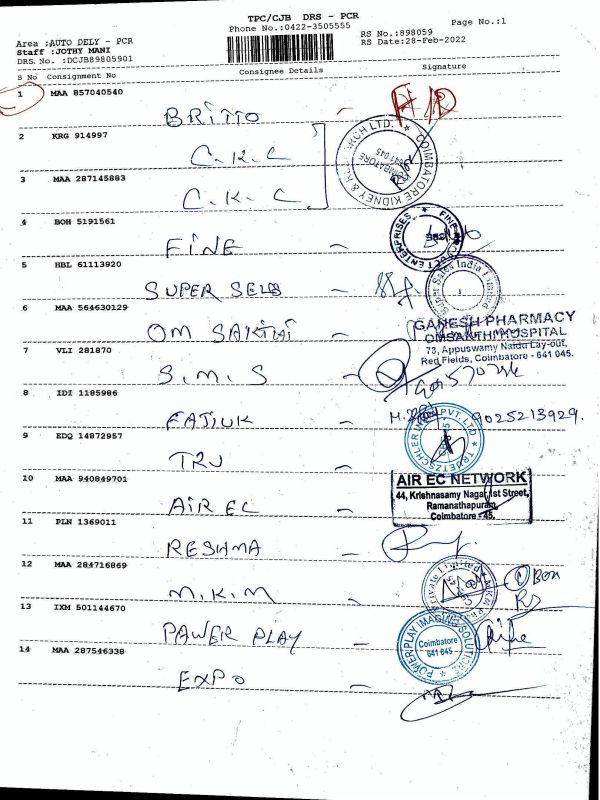 TPC/CJB DRS - PCR
Phone No.:0422-3505555
Page No.:1
Area :AUTO DELY - PCR
Staff :JOTHY MANI
DRS. No. :DCJB89805901
RS No.:898059
RS Date:28-Feb-2022
S No Consignment No Consignee Details Signature
1 MAA 857040540
BRITTO
2 KRG 914997
C.K.C
3 MAA 287145883
C.K.C
COIMBATORE KIDNEY & RESEARCH LTD.
COIMBATORE
641 045
4 BOH 5191561
FINE
5 HBL 61113920
SUPER SELB
Super Sales India Limited
6 MAA 564630129
OM SAKTHI
GANESH PHARMACY
OMSANTHI HOSPITAL
73, Appuswamy Naidu Lay-out,
Red Fields, Coimbatore - 641 045.
7 VLI 281870
S.M.S
8 IDI 1185986
9025213929.
9 EDQ 14872957
TRU
10 MAA 940849701
AIR EC
AIR EC NETWORK
44, Krishnasamy Nagar, 1st Street,
Ramanathapuram,
Coimbatore - 45.
11 PLN 1369011
RESHMA
12 MAA 284716869
M.K.M
13 IXM 501144670
PAWER PLAY
POWERPLAY IMAGING SOLUTIONS
Coimbatore
641 045
14 MAA 287546338
EXPO